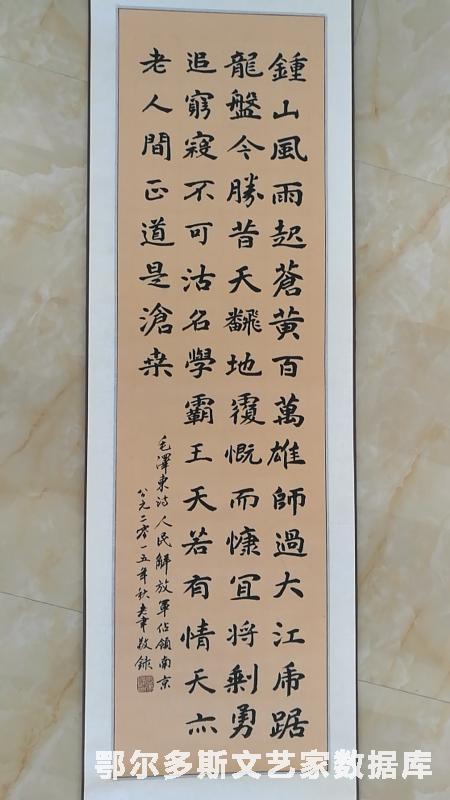 鍾山風雨起蒼黃百萬雄師過大江虎踞
龍盤今勝昔天飜地覆慨而慷宜将剩勇
追窮寇不可沽名學霸王天若有情天亦
老人間正道是滄桑
毛澤東诗人民解放軍佔領南京
公元二零一五年秋敬錄
鄂尔多斯文艺家数据库